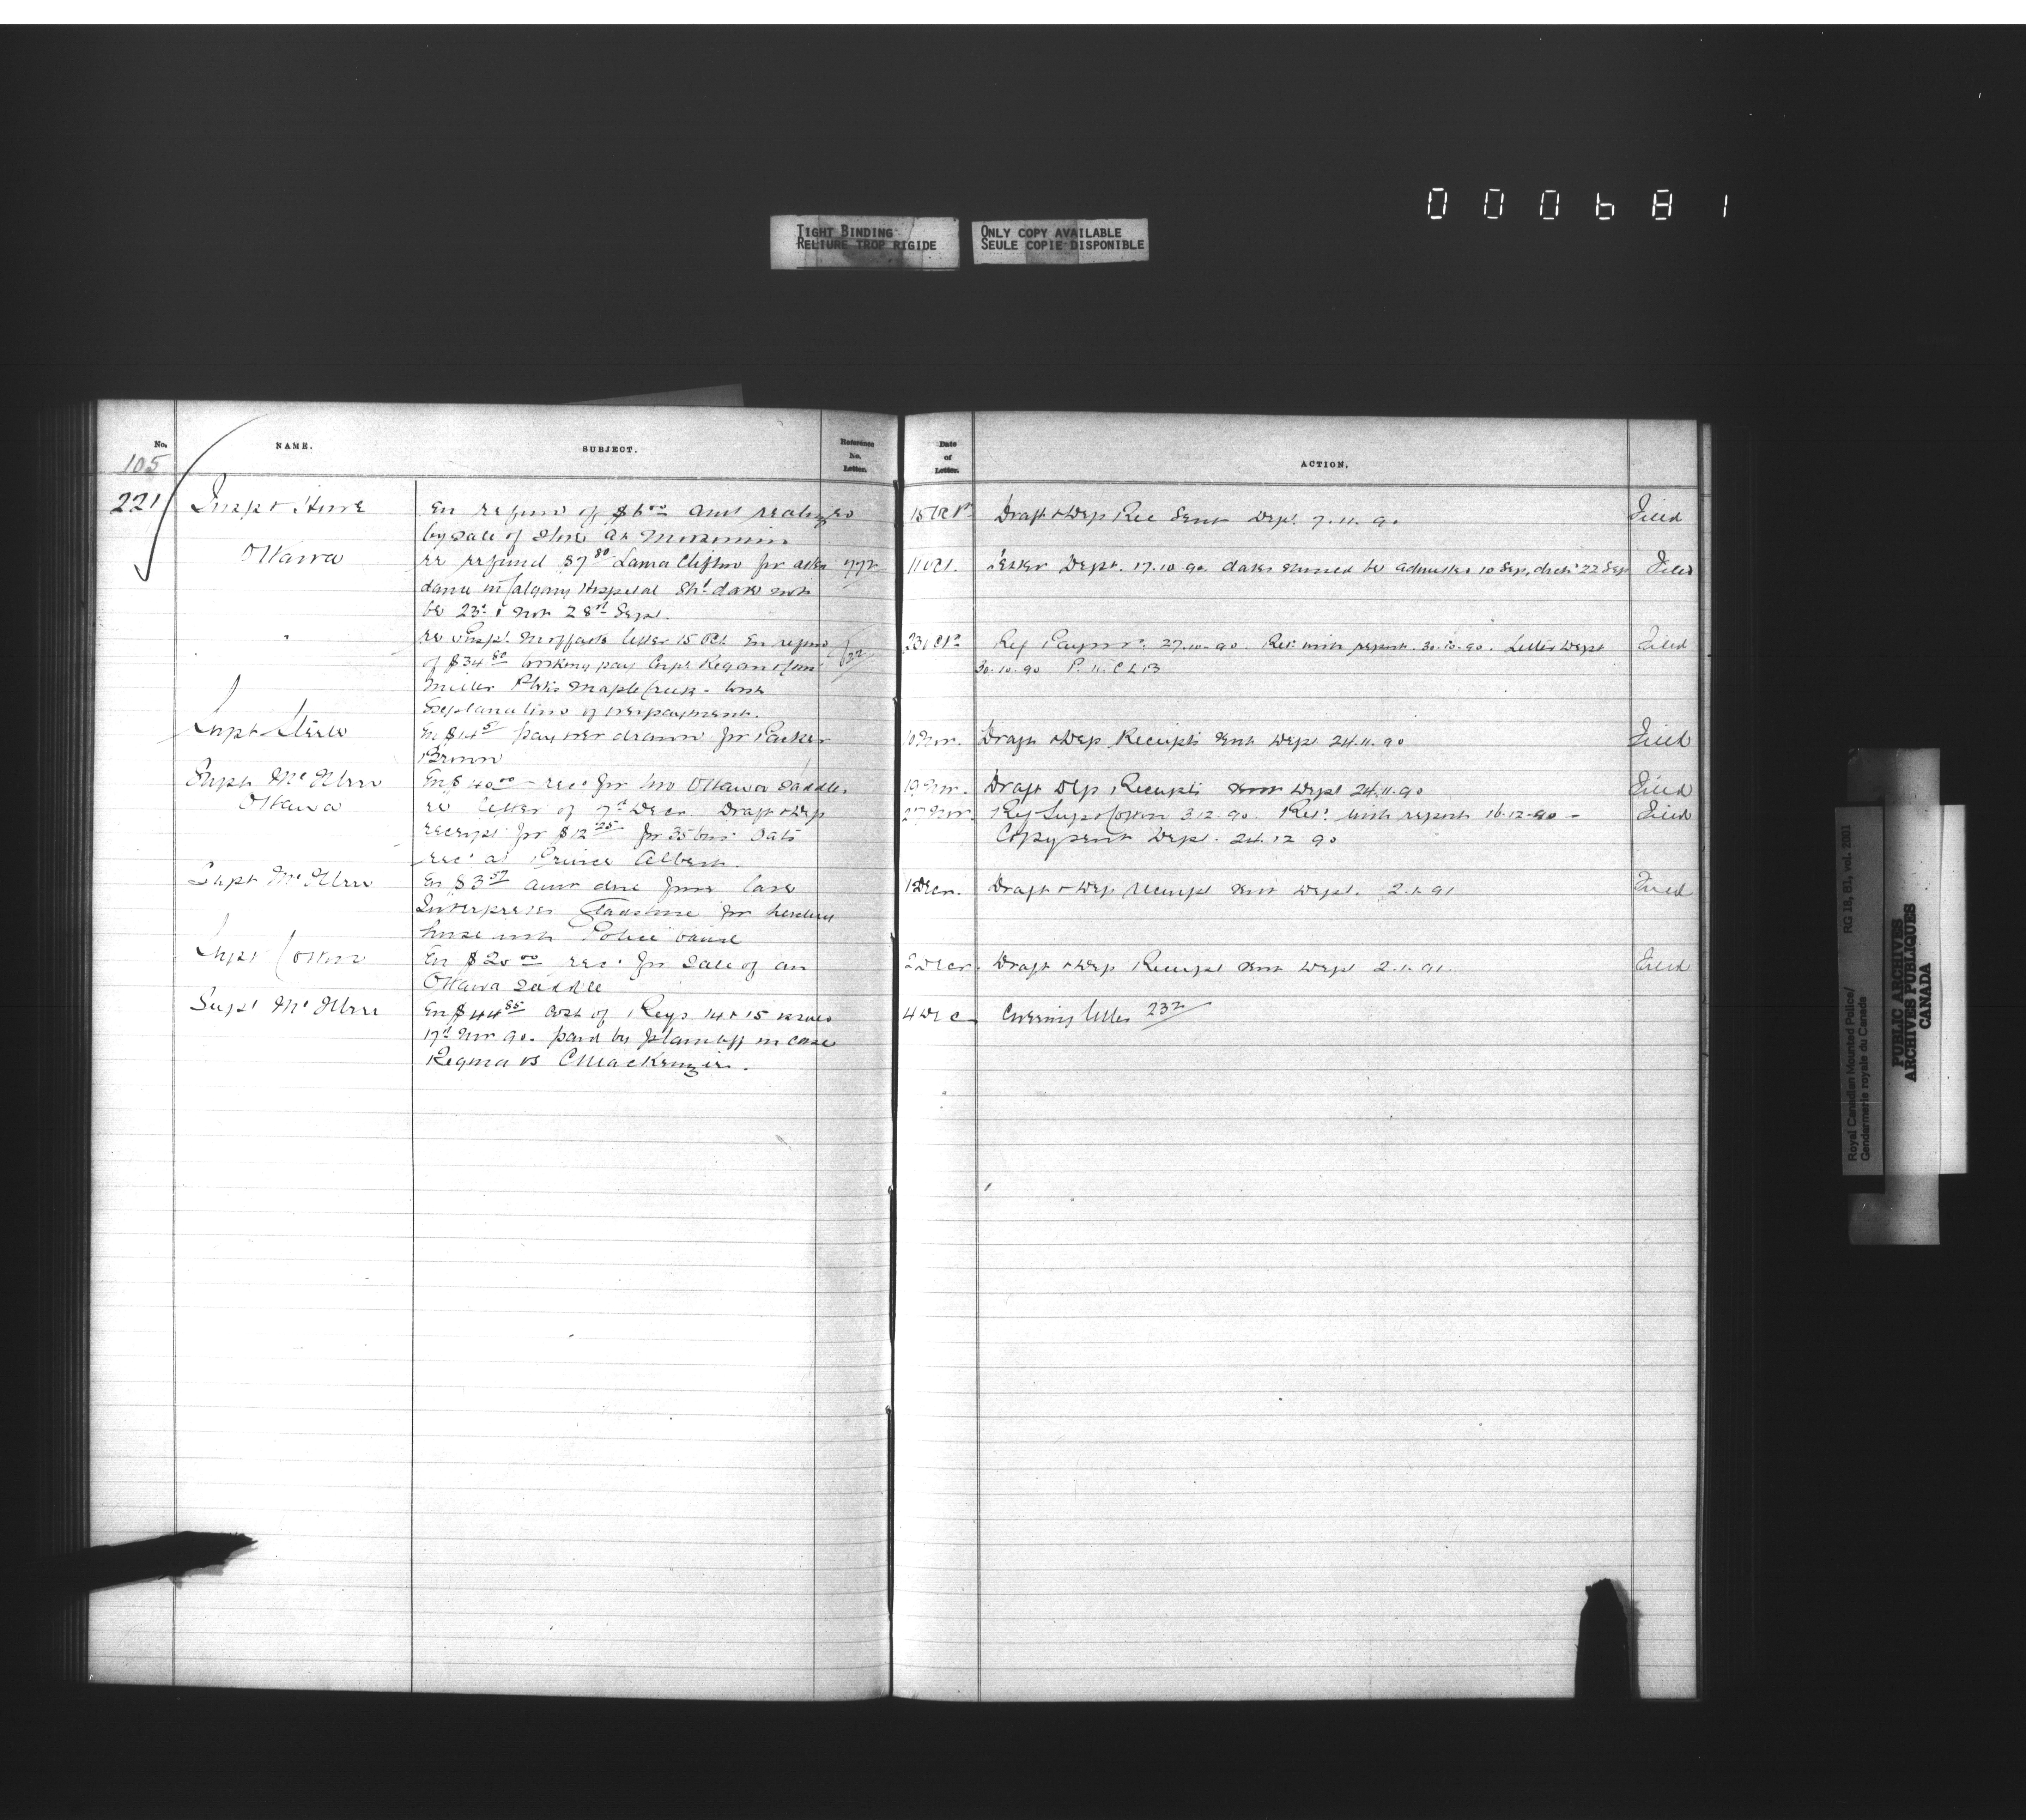 000681
TIGHT BINDING
RELIURE TROP RIGIDE
ONLY COPY AVAILABLE
SEULE COPIE DISPONIBLE
No.
NAME.
SUBJECT.
Reference
No.
Letter.
Date
of
Letter.
ACTION.
105
221
Inspr Howe
En refund of $6 00 amt realized
by sale of Stove at
15 Oct
Draft & Dep Rec Sent Dept. 7.11.90
Filed
Ottawa
re refund $7 80 Laura Clifton for atten
772
11 Oct.
Letter Dept. 17.10.90 dates should be admitted 10 Sep, disch 22 Sep
Filed
dance in Calgary Hospital Shd date not
be 23d & not 28th Sept.
"
re Inspr Moffatts letter 15 Oct En refund
632
23 Oct
Ref Paymr 27.10.90. Retd with report. 30.10.90. Letter Dept
Filed
of $34 80 working pay Corpl Regan & Const
30.10.90
Miller Maple Creek - with
Explanation of overpayment.
Supt Steele
En $14 pay over drawn for Parker
10 Nov.
Draft & Dep Receipts sent Dept 24.11.90
Filed
Brown
Supt McIllree
En $40 00 recd for two Ottawa Saddles
19 Nov.
Draft Dep Receipts sent Dept 24.11.90
Filed
Ottawa
re letter of 7th Decr Draft & Dep
27 Nov.
Ref Supt Cotton 3.12.90. Retd with report 16.12.90 -
Filed
receipt for $12 25 for 35 bus. Oats
Copy sent Dept. 24.12.90
recd at Prince Albert.
Supt McIllree
En $3 57 amt due from late
1 Decr.
Draft & Dep Receipt sent Dept. 2.1.91
Filed
Interpreter Gladstone for herding
horse with Police band
Supt Cotton
En $20 00 recd for Sale of an
2 Decr.
Draft & Dep Receipt sent Dept 2.1.91.
Filed
Ottawa Saddle
Supt McIllree
En $44 85 cost of Regs. 14 & 15 issued
4 Dec
Covering letter 232
17th Nov 90. paid by plaintiff in case
Regina vs C MacKenzie.
Royal Canadian Mounted Police/
Gendarmerie royale du Canada
RG 18, B1, vol. 2001
PUBLIC ARCHIVES
ARCHIVES PUBLIQUES
CANADA